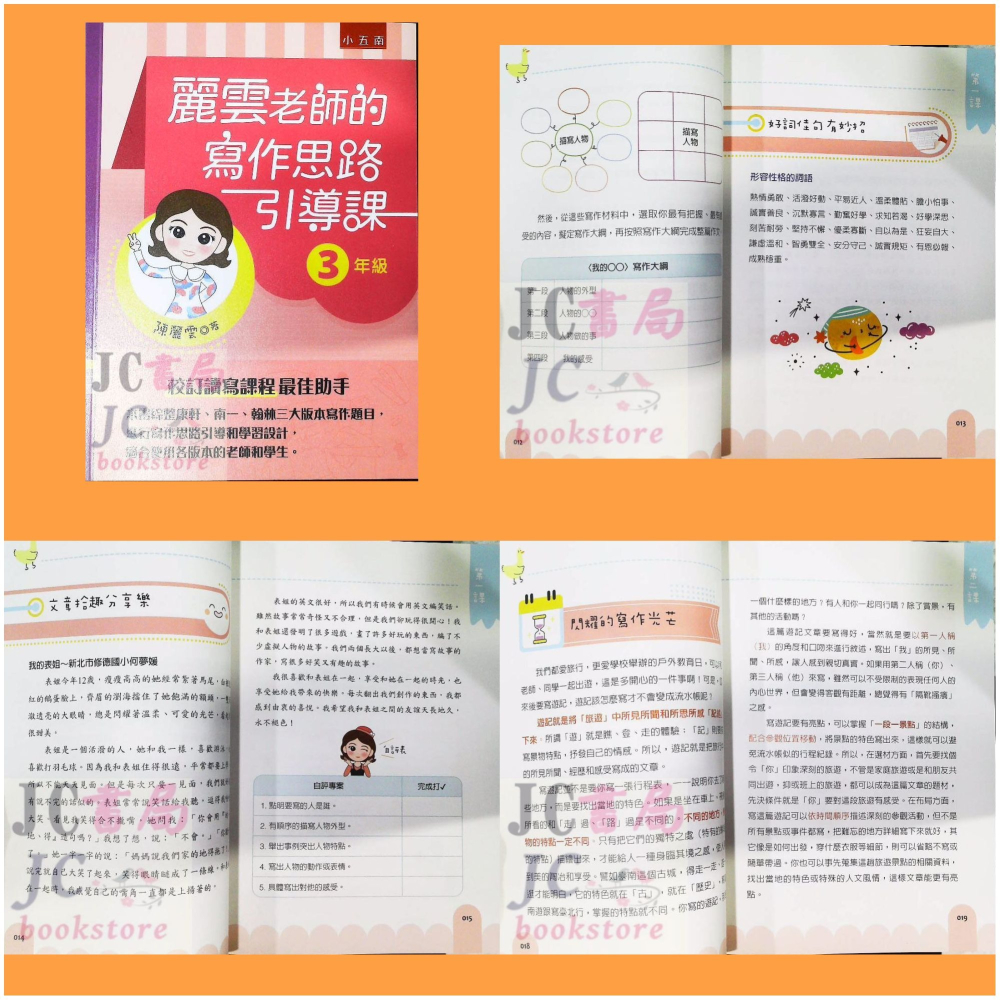 小五南
麗雲老師的
寫作思路
引導課
3年級
陳麗雲◎著
校訂讀寫課程 最佳助手
寫作題目,
寫作思路引導和學習設計,
各版本的老師和學生。
JC書局
JC
bookstore
第一課
描寫人物
描寫
人物
好詞佳句有妙招
然後,從這些寫作材料中,選取你最有把握、最有
受的內容,擬定寫作大綱,再按照寫作大綱完成整篇作文
〈我的○○〉寫作大綱
第一段 人物的外型
第二段 人物的○○
第三段 人物做的事
第四段 我的感受
012
形容性格的詞語
熱情勇敢、活潑好動、平易近人、溫柔體貼、膽小怕事、
誠實善良、沉默寡言、勤奮好學、求知若渴、好學深思、
刻苦耐勞、堅持不懈、優柔寡斷、自以為是、狂妄自大、
謙虛溫和、智勇雙全、安分守己、誠實規矩、有恩必報、
成熟穩重。
013
JC書局
JC
bookstore
文章拾趣分享樂
我的表姐~新北市修德國小何夢媛
表姐今年12歲,瘦瘦高高的她經常紮著馬尾,白
紅的鵝蛋臉上,齊眉的瀏海擋住了她飽滿的額頭,一雙
澈透亮的大眼睛,總是閃耀著溫柔、可愛的光芒,
很甜美。
表姐是一個活潑的人,她和我一樣,喜歡游泳
喜歡打羽毛球。因為我和表姐住得很遠,平常都要上
所以不能天天見面,但是每次只要一見面,我們就
有說不完的話似的。表姐常常說笑話給我聽,逗得我
大笑。看見我笑得合不攏嘴,她問我:「你會用『
地、得』造句嗎?」我想了想,說:「不會。」
說完就自己大笑了起來,笑得眼睛瞇成了一條線。和
在一起時,我感覺自己的嘴角一直都是上揚著的。
014
表姐的英文很好,所以我們有時候會用英文編笑話。
雖然故事常常奇怪又不合理,但是我們卻玩得很開心!我
和表姐還發明了很多遊戲,畫了許多好玩的東西,編了不
少虛擬人物的故事。我們兩個長大以後,都想當寫故事的
作家,寫很多好笑又有趣的故事。
我很喜歡和表姐在一起,享受和她在一起的時光,也
享受她給我帶來的快樂。每次翻出我們創作的東西,我都
感到由衷的喜悅。我希望我和表姐之間的友誼天長地久,
永不褪色!
自評表
自評專案 完成打✓
1. 點明要寫的人是誰。
2. 有順序的描寫人物外型。
3. 舉出事例突出人物特點。
4. 寫出人物的動作或表情。
5. 具體寫出對他的感受。
015
JC書局
JC
bookstore
閃耀的寫作光芒
我們都愛旅行,更愛學校舉辦的戶外教育日,可以
老師、同學一起出遊,這是多開心的一件事啊!可是,
來後要寫遊記,遊記該怎麼寫才不會變成流水帳呢?
遊記就是將「旅遊」中所見所聞和所思所感「記
下來。所謂「遊」就是進、登、走的體驗;「記」則
寫景物特點,抒發自己的情感。所以,遊記就是把
的所見所聞、經歷和感受寫成的文章。
寫遊記並不是要你寫一張行程表,一一說明你去了
些地方,而是要找出當地的特色。如果是坐在車上,
所看的和「走」過、「路」過是不同的。不同的地方,
物的特點一定不同。只有把它們的獨特之處
的特點)描述出來,才能給人一種身臨其境之感,
018
一個什麼樣的地方?有人和你一起同行嗎?除了賞景,有
其他的活動嗎?
這篇遊記文章要寫得好,當然就是要以第一人稱
(我)的角度和口吻來進行敘述,寫出「我」的所見、所
聞、所感,讓人感到親切真實。如果用第二人稱(你)、
第三人稱(他)來寫,雖然可以不受限制的表現任何人的
內心世界,但會變得客觀有距離,總覺得有「隔靴搔癢」
之感。
寫遊記要有亮點,可以掌握「一段一景點」的結構,
配合參觀位置移動,將景點的特色寫出來,這樣就可以避
免流水帳似的行程紀錄。所以,在選材方面,首先要找個
令「你」印象深刻的旅遊,不管是家庭旅遊或是和朋友共
同出遊,抑或班上的旅遊,都可以成為這篇文章的題材,
先決條件就是「你」要對這段旅遊有感受。在布局方面,
寫這篇遊記可以依時間順序描述深刻的參觀活動,但不是
所有景點或事件都寫,把難忘的地方詳細寫下來就好,其
它像是如何出發,穿什麼衣服等細節,則可以省略不寫或
簡單帶過。你也可以事先蒐集這趟旅遊景點的相關資料,
找出當地的特色或特殊的人文風情,這樣文章能更有亮
點。
019
JC書局
JC
bookstore